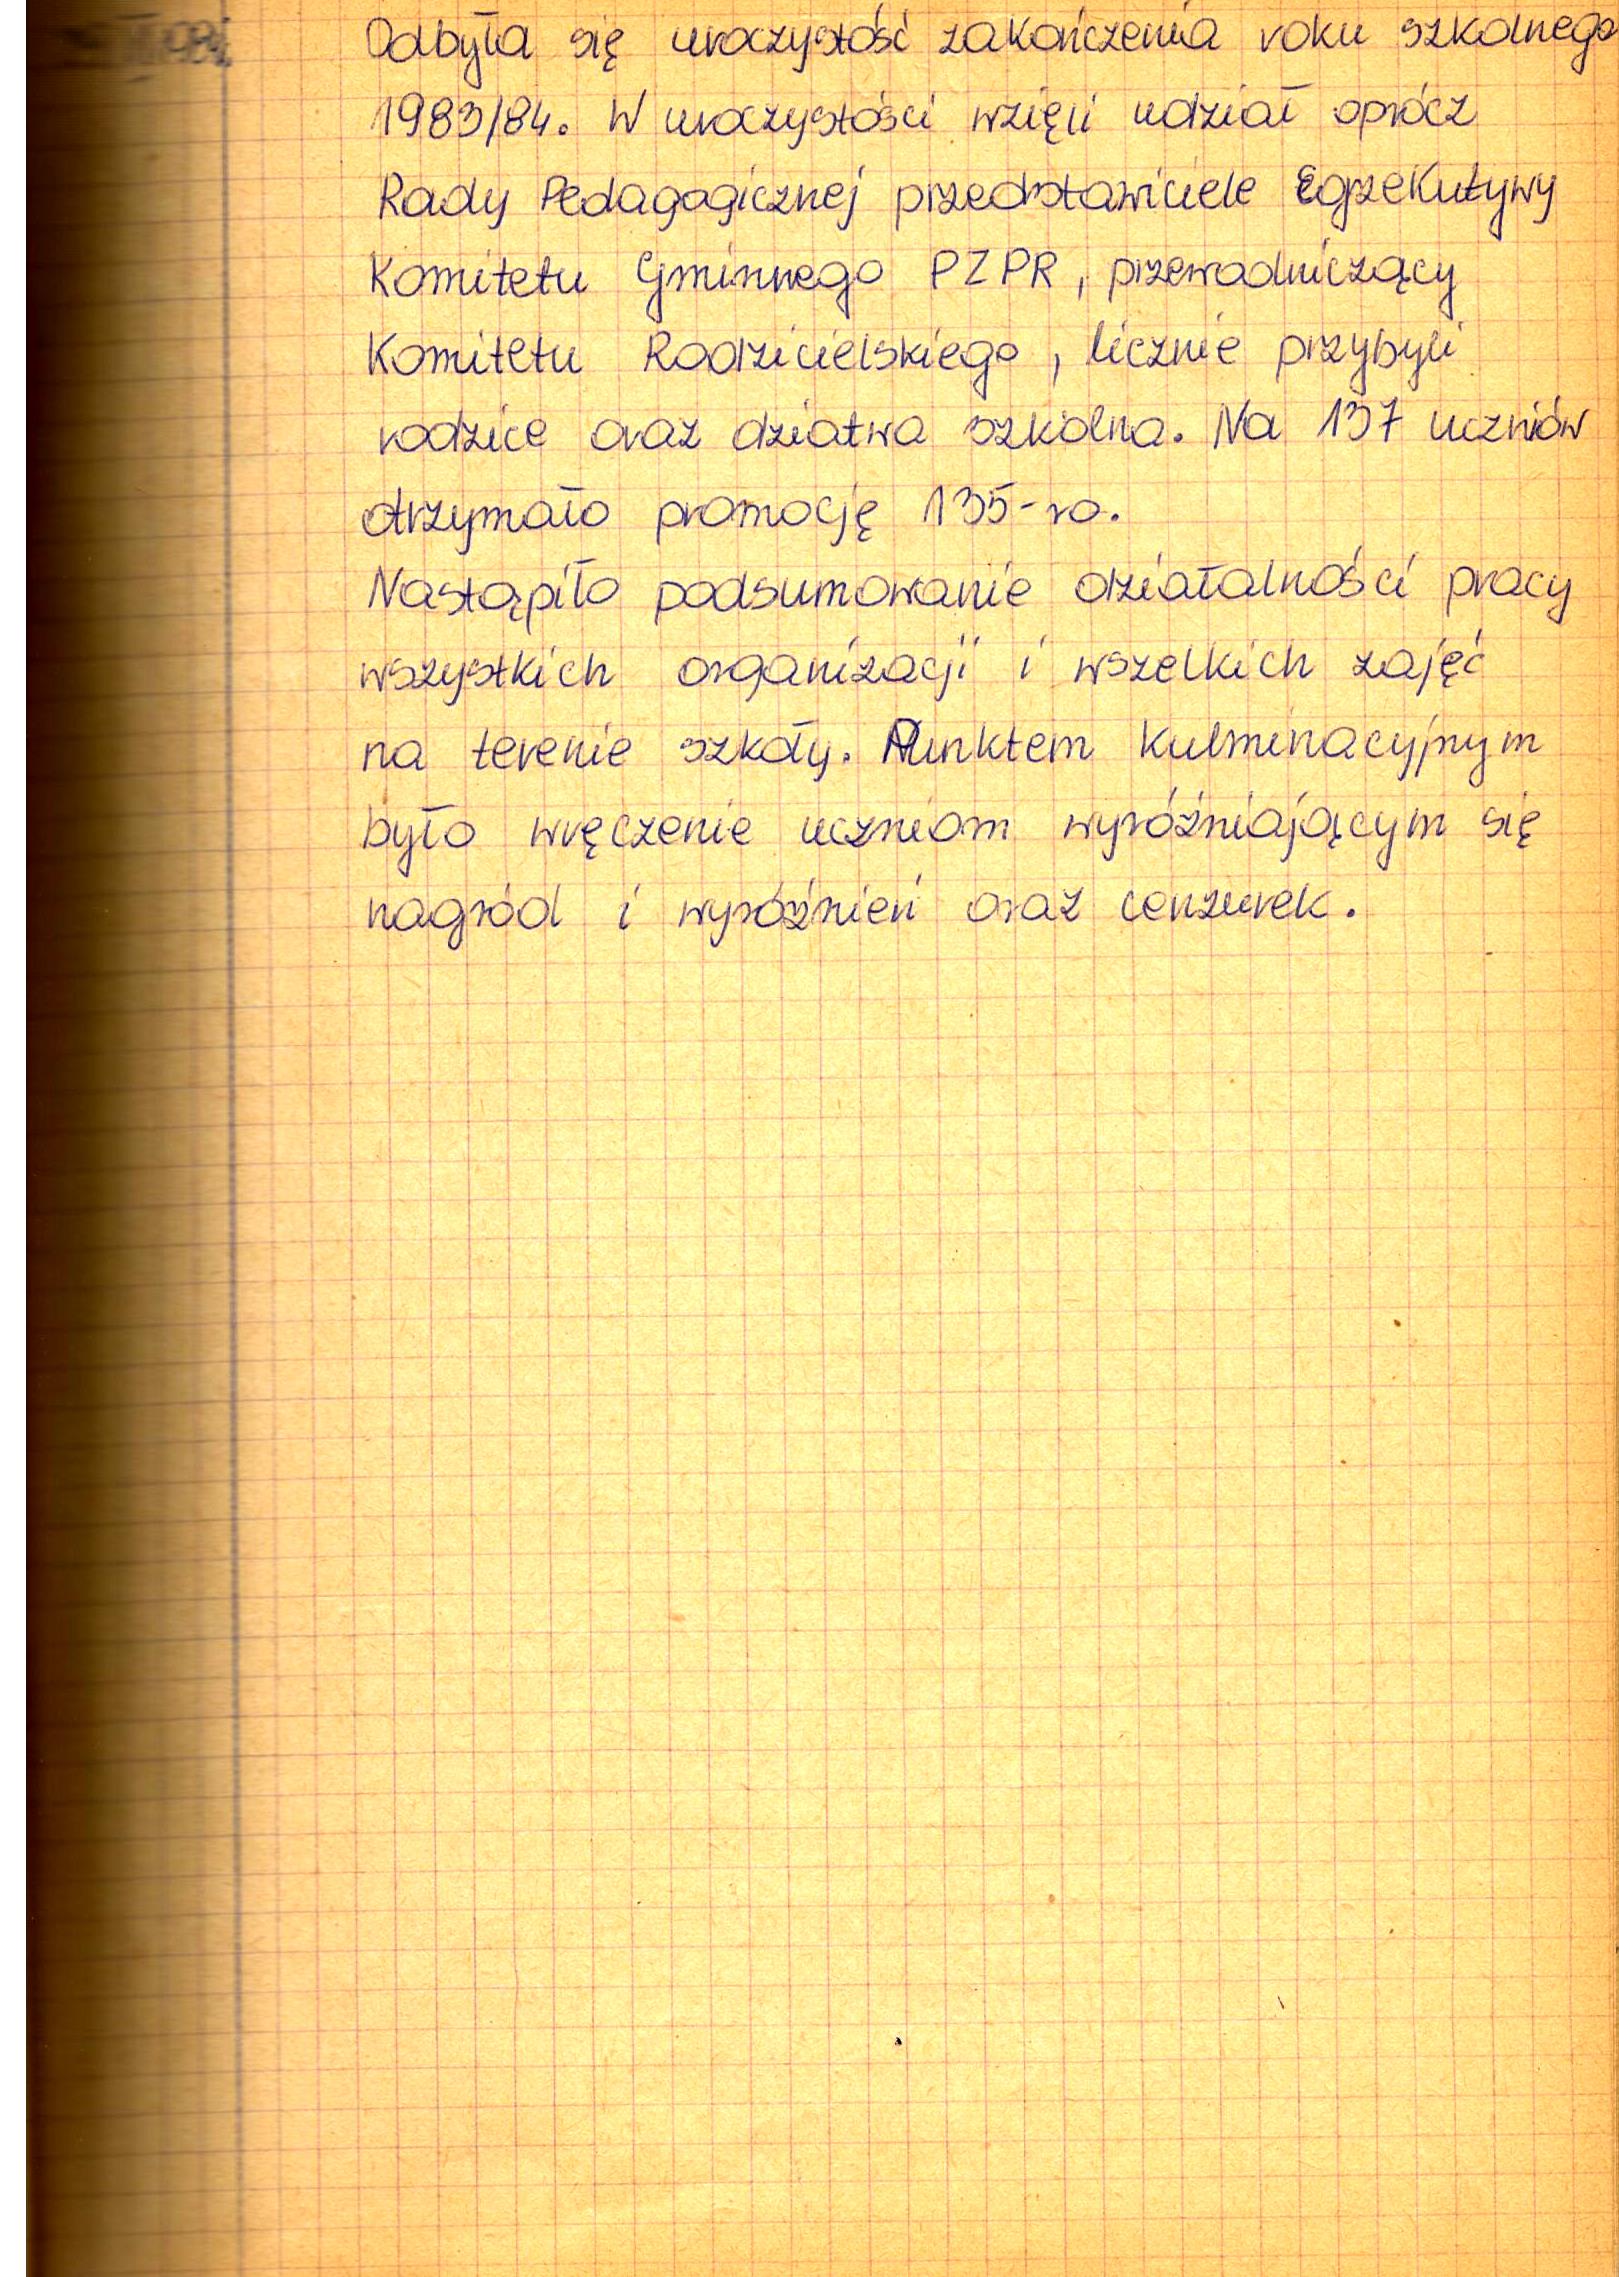 Odbyła się uroczystość zakończenia roku szkolnego
1983/84. W uroczystości wzięli udział oprócz
Rady Pedagogicznej przedstawiciele Egzekutywy
Komitetu Gminnego PZPR, przewodniczący
Komitetu Rodzicielskiego, licznie przybyli
rodzice oraz dziatwa szkolna. Na 137 uczniów
otrzymało promocję 135-ro.
Nastąpiło podsumowanie działalności pracy
wszystkich organizacji i wszelkich zajęć
na terenie szkoły. Punktem kulminacyjnym
było wręczenie uczniom wyróżniającym się
nagród i wyróżnień oraz cenzurek.